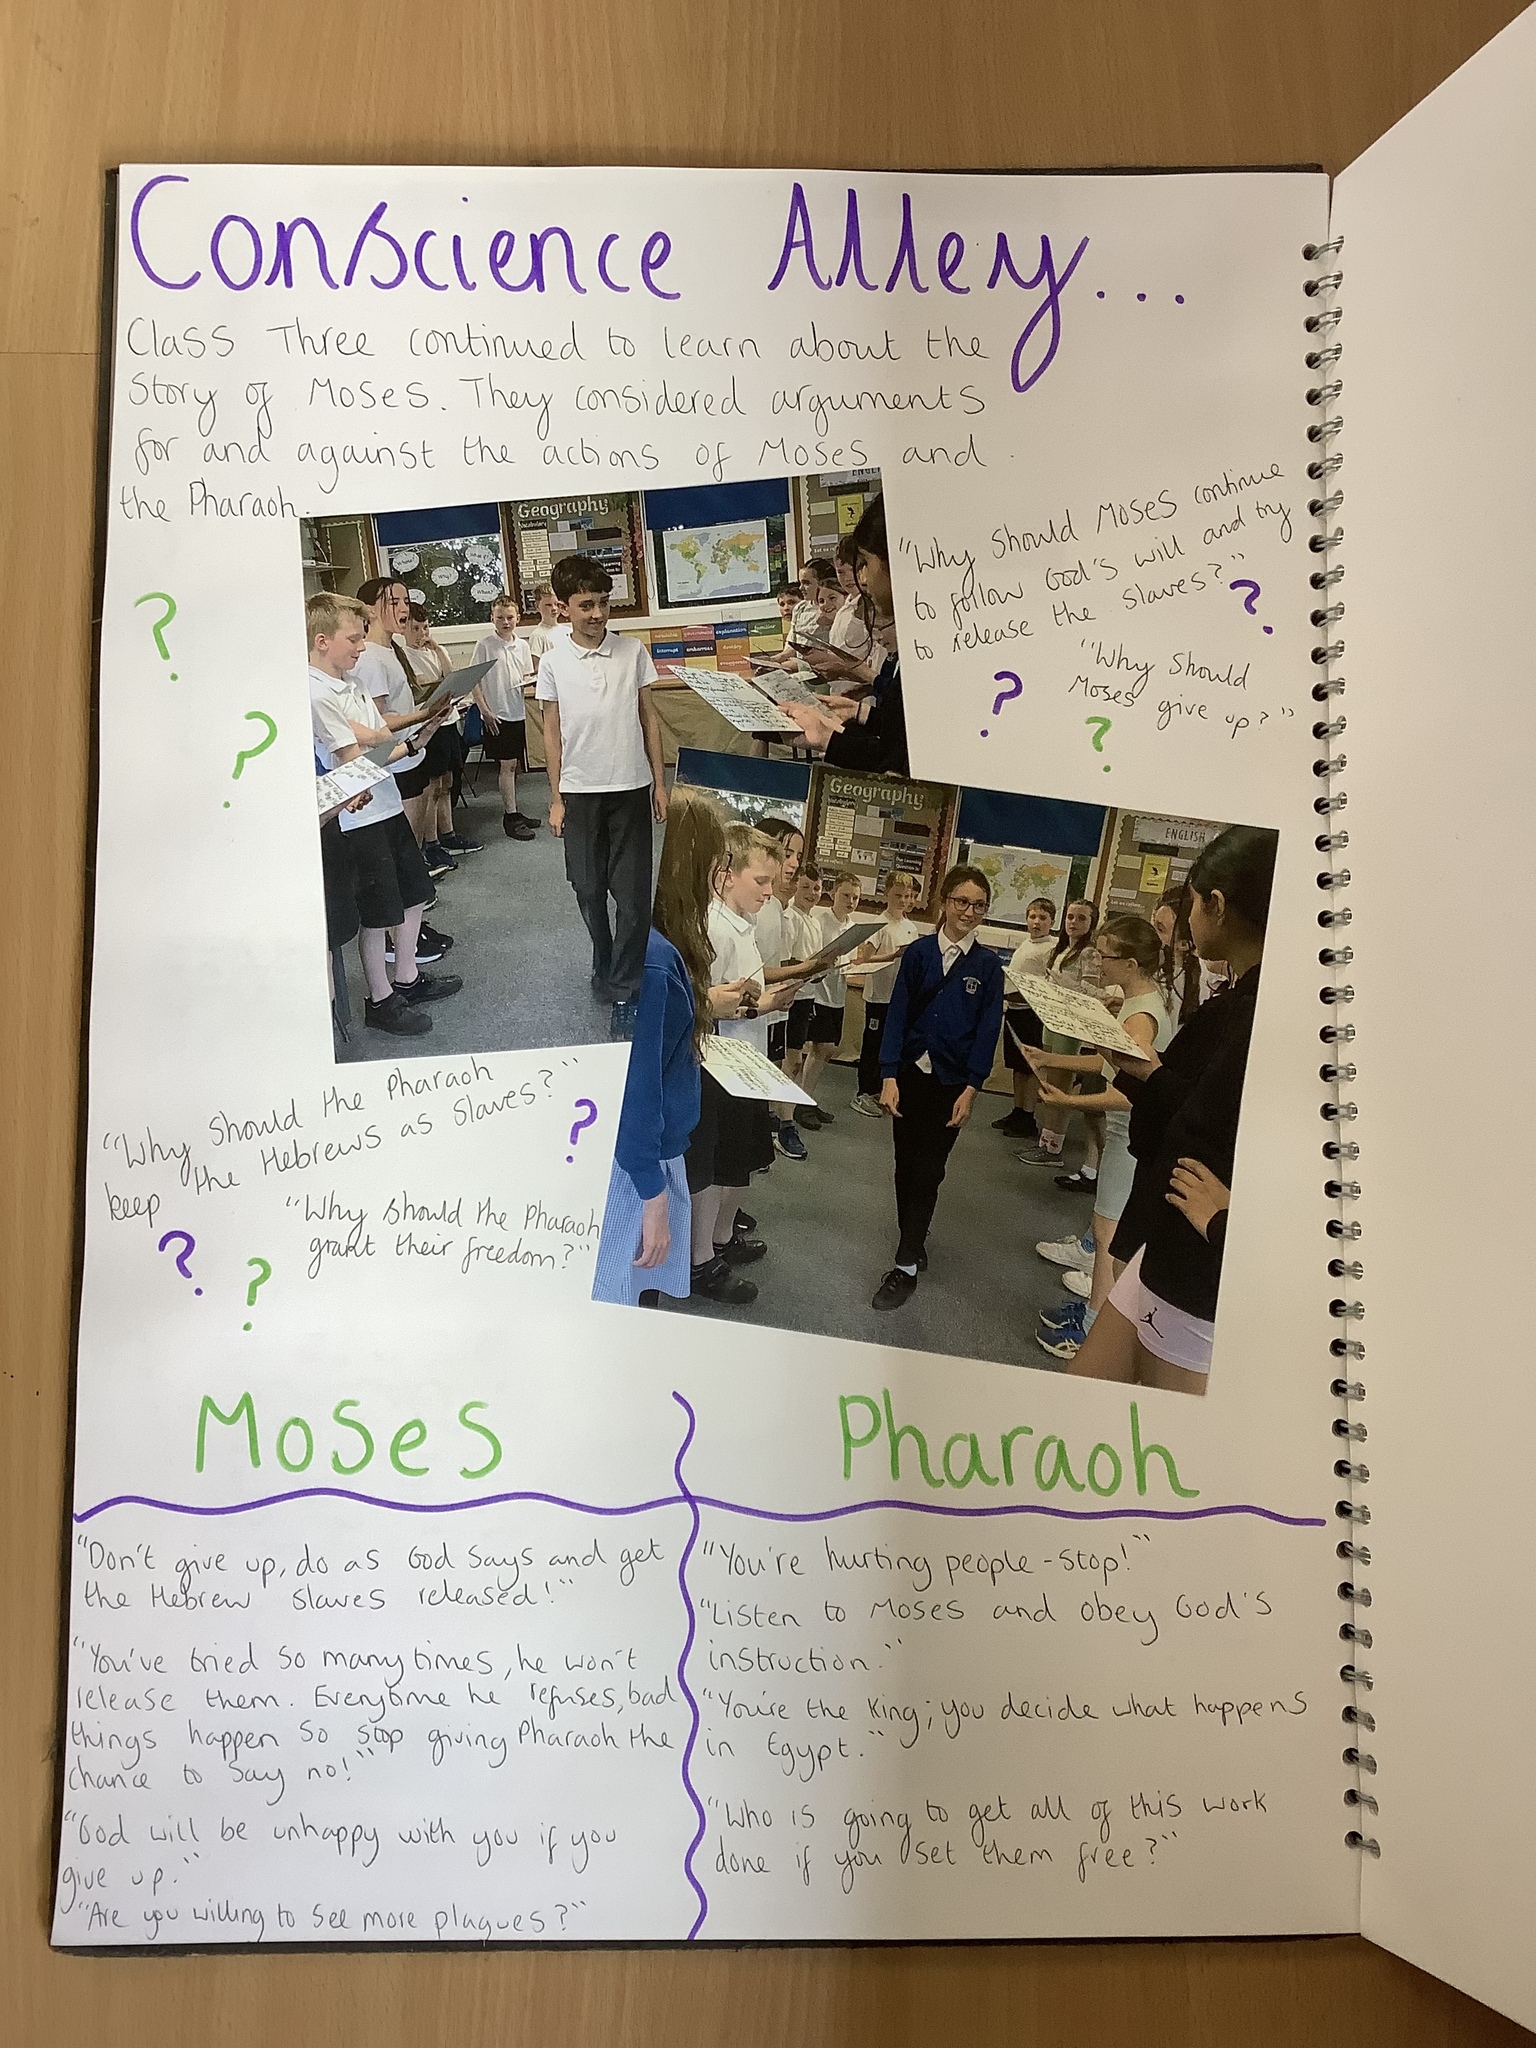 Conscience Alley...
Class Three continued to learn about the
Story of Moses. They considered arguments
for and against the actions of Moses and
the Pharaoh.
Geography
ENGLISH
"Why Should Moses continue
to follow God's will and try
to release the slaves?"
"Why Should
Moses give up?"
Geography
ENGLISH
"Why Should the Pharaoh
keep the Hebrews as Slaves?"
"Why should the Pharaoh
grant their freedom?"
Moses
"Don't give up, do as God says and get
the Hebrew slaves released!"
"You've tried so many times, he won't
release them. Everytime he refuses, bad
things happen so stop giving Pharaoh the
chance to say no!"
"God will be unhappy with you if you
give up."
"Are you willing to see more plagues?"
Pharaoh
"You're hurting people - stop!"
"Listen to Moses and obey God's
instruction."
"You're the King; you decide what happens
in Egypt."
"Who is going to get all of this work
done if you set them free?"